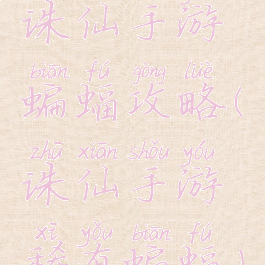 诛仙手游
biān fú gōng lüè
蝙蝠攻略(
zhū xiān shǒu yóu
诛仙手游
xī yǒu biān fú
稀有蝙蝠)